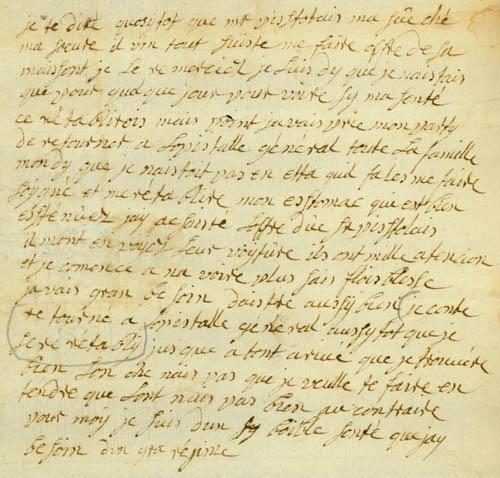 je te dire quositot que mr pissfolais ma sue ché
ma seure il vin tout suiste me faire offre de sa
maissont je le re merciez je luis dy que je nais tais
que pour quaque jour pour voire sy ma santé
ce rétablirois mais quant javais prie mon party
de retourner a lopistalle général toute la famille
mon dy que je naistoit pas en etta quil fales me faire
soygné et me retablire mon esstomac que est bien
esstenuez jay acsepté loffre due sr pissfolais
il mont envoyez leur voyture ils ont mille atencion
et je comence a na voire plus sais floisblesse
javais gran besoin daistre aussy bien je conte
re tourne a lopistalle général aussytot que je
sere rétably jus que a tont arivé que je trouvere
bien lon che nais pas que je veulle te faire en
tendre que lont nais pas bien au contraire
pour moy je suis dun sy foible santé que jay
besoin dun gra réjime